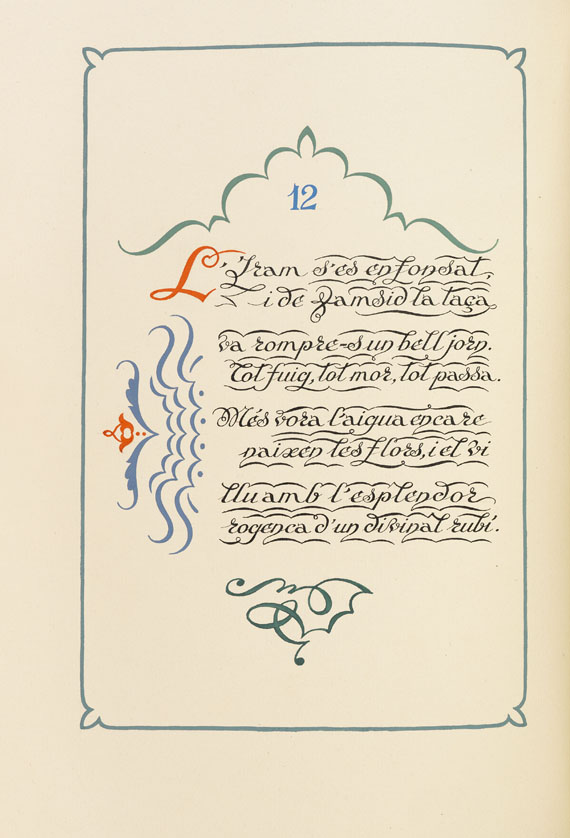 12
L'Iram s'es enfonsat,
i de Jamsid la taça
va rompre-s un bell jorn.
Tot fuig, tot mor, tot passa.
Més vora l'aigua encare
naixen les flors, i el vi
lluamb l'esplendor
rogenca d'un divinal rubí.